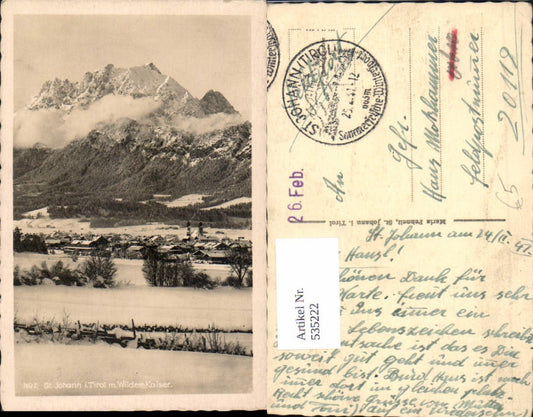 892, St. Johann i. Tirol m. Wilden Kaiser.
ST. JOHANN (TIROL)
Sommerfrische-Wintersport
26. Feb.
An
Gefr.
Hans
Feldpostnummer
20119
65
Maria Pehneit, St. Johann i. Tirol
St. Johann am 24/II. 42
Hansl!
schönen Dank für
Karte. Freut uns sehr
uns immer ein
Lebenszeichen schreibst
ist das es Dir
soweit gut geht und immer
gesund bist. Bin Hans ist noch
immer dort im gleichen platz
Recht schöne Grüsse von
und
Artikel Nr.
535222